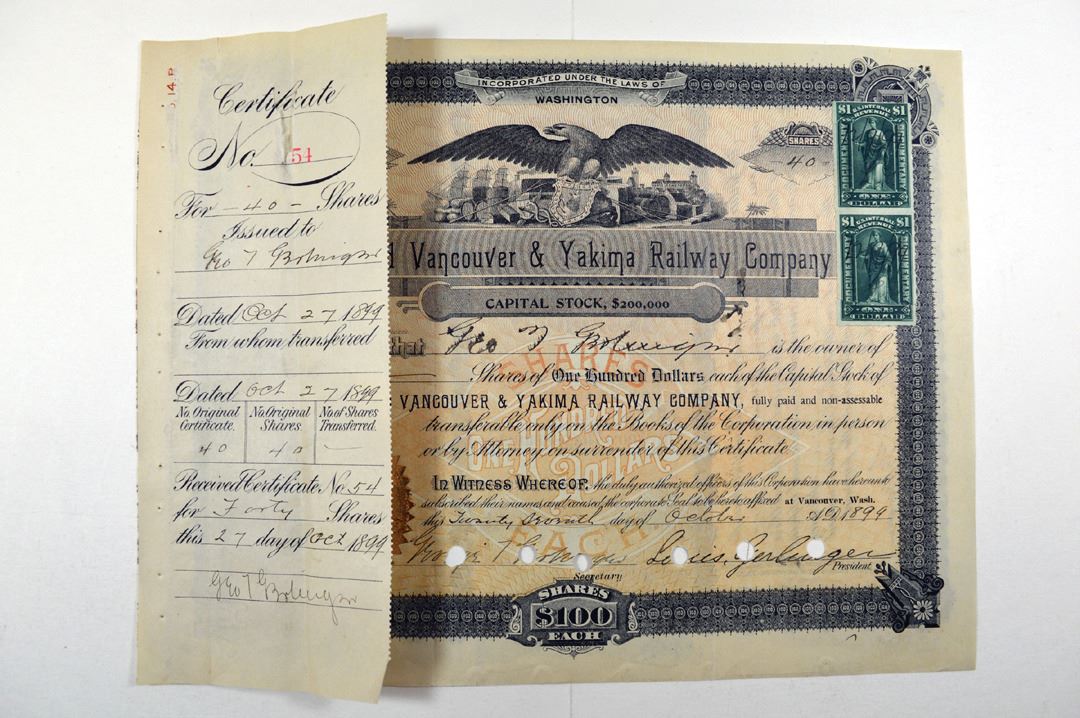 Certificate
No. 54
For - 40 - Shares
Issued to
Geo T
Dated Oct 27 1899
From whom transferred
Dated Oct 27 1899
No. Original Certificate.
No. Original Shares.
No. of Shares Transferred.
40
40
—
Received Certificate No. 54
for Forty Shares
this 27 day of Oct 1899
Geo T
INCORPORATED UNDER THE LAWS OF
WASHINGTON
SHARES
- 40 -
$1 U.S. INTERNAL REVENUE $1
DOCUMENTARY
DOCUMENTARY
ONE
DOLLAR
$1 U.S. INTERNAL REVENUE $1
DOCUMENTARY
DOCUMENTARY
ONE
DOLLAR
Vancouver & Yakima Railway Company
CAPITAL STOCK, $200,000
that Geo T is the owner of
Shares of One Hundred Dollars each of the Capital Stock of
VANCOUVER & YAKIMA RAILWAY COMPANY, fully paid and non-assessable
transferable only on the Books of the Corporation in person
or by Attorney on surrender of this Certificate.
SHARES
ONE HUNDRED
DOLLARS
EACH
In Witness Whereof, the duly authorized officers of this Corporation have hereunto
subscribed their names and caused the corporate Seal to be hereto affixed at Vancouver, Wash.
this Twenty Seventh day of October A.D. 1899
George T
Secretary
Louis Gerlinger
President
SHARES
$100
EACH